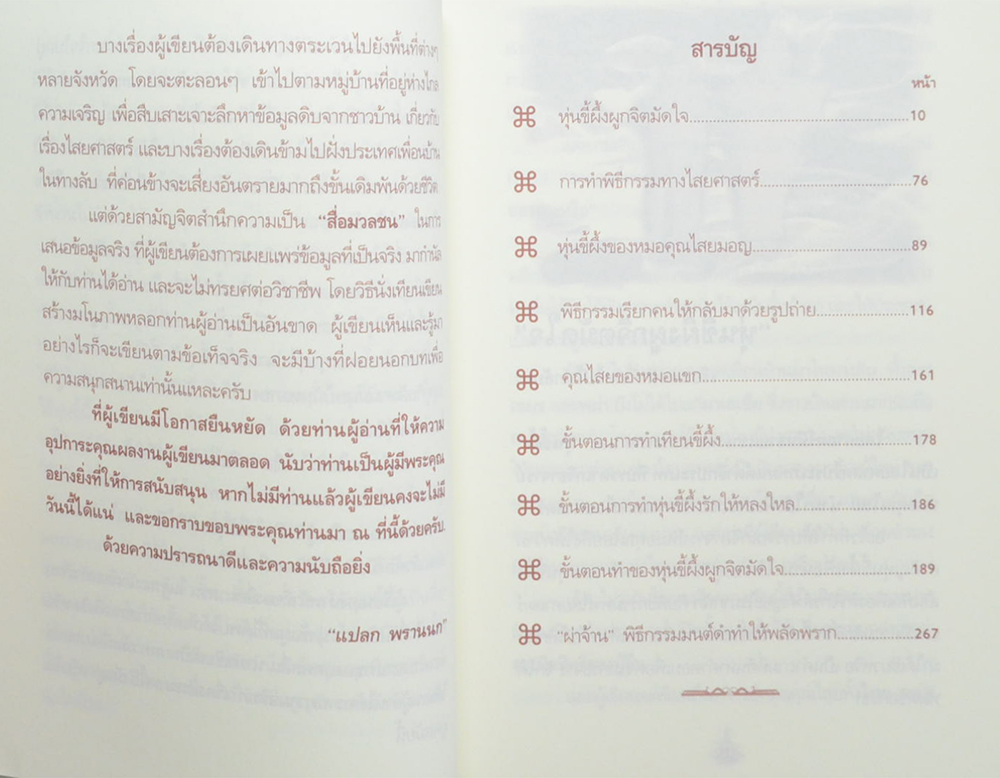 บางเรื่องผู้เขียนต้องเดินทางตระเวนไปยังพื้นที่ต่างๆ
หลายจังหวัด โดยจะตะลอนๆ เข้าไปตามหมู่บ้านที่อยู่ห่างไกล
ความเจริญ เพื่อสืบเสาะเจาะลึกหาข้อมูลดิบจากชาวบ้าน เกี่ยวกับ
เรื่องไสยศาสตร์ และบางเรื่องต้องเดินข้ามไปฝั่งประเทศเพื่อนบ้าน
ในทางลับ ที่ค่อนข้างจะเสี่ยงอันตรายมากถึงขั้นเดิมพันด้วยชีวิต
แต่ด้วยสามัญจิตสำนึกความเป็น “สื่อมวลชน” ในการ
เสนอข้อมูลจริง ที่ผู้เขียนต้องการเผยแพร่ข้อมูลที่เป็นจริง มากำนัล
ให้กับท่านได้อ่าน และจะไม่ทรยศต่อวิชาชีพ โดยวิธีนั่งเทียนเขียน
สร้างมโนภาพหลอกท่านผู้อ่านเป็นอันขาด ผู้เขียนเห็นและรู้มา
อย่างไรก็จะเขียนตามข้อเท็จจริง จะมีบ้างที่ฝอยนอกบทเพื่อ
ความสนุกสนานเท่านั้นแหละครับ
ที่ผู้เขียนมีโอกาสยืนหยัด ด้วยท่านผู้อ่านที่ให้ความ
อุปการะคุณผลงานผู้เขียนมาตลอด นับว่าท่านเป็นผู้มีพระคุณ
อย่างยิ่งที่ให้การสนับสนุน หากไม่มีท่านแล้วผู้เขียนคงจะไม่มี
วันนี้ได้แน่ และขอกราบขอบพระคุณท่านมา ณ ที่นี้ด้วยครับ
ด้วยความปรารถนาดีและความนับถือยิ่ง
“แปลก พรานนก”
สารบัญ
หน้า
หุ่นขี้ผึ้งผูกจิตมัดใจ 10
การทำพิธีกรรมทางไสยศาสตร์ 76
หุ่นขี้ผึ้งของหมอคุณไสยมอญ 89
พิธีกรรมเรียกคนให้กลับมาด้วยรูปถ่าย 116
คุณไสยของหมอแขก 161
ขั้นตอนการทำเทียนขี้ผึ้ง 178
ขั้นตอนการทำหุ่นขี้ผึ้งรักให้หลงใหล 186
ขั้นตอนทำของหุ่นขี้ผึ้งผูกจิตมัดใจ 189
“ผ่าจ้าน” พิธีกรรมมนต์ดำทำให้พลัดพราก 267